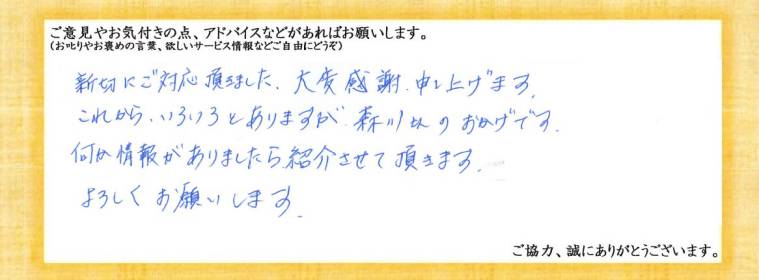 ご意見やお気付きの点、アドバイスなどがあればお願いします。
(お叱りやお褒めの言葉、欲しいサービス情報などご自由にどうぞ)
新切にご対応頂きました、大変感謝申し上げます。
これから、いろいろとありますが、森川さんのおかげです。
何か情報がありましたら紹介させて頂きます。
よろしくお願いします。
ご協力、誠にありがとうございます。